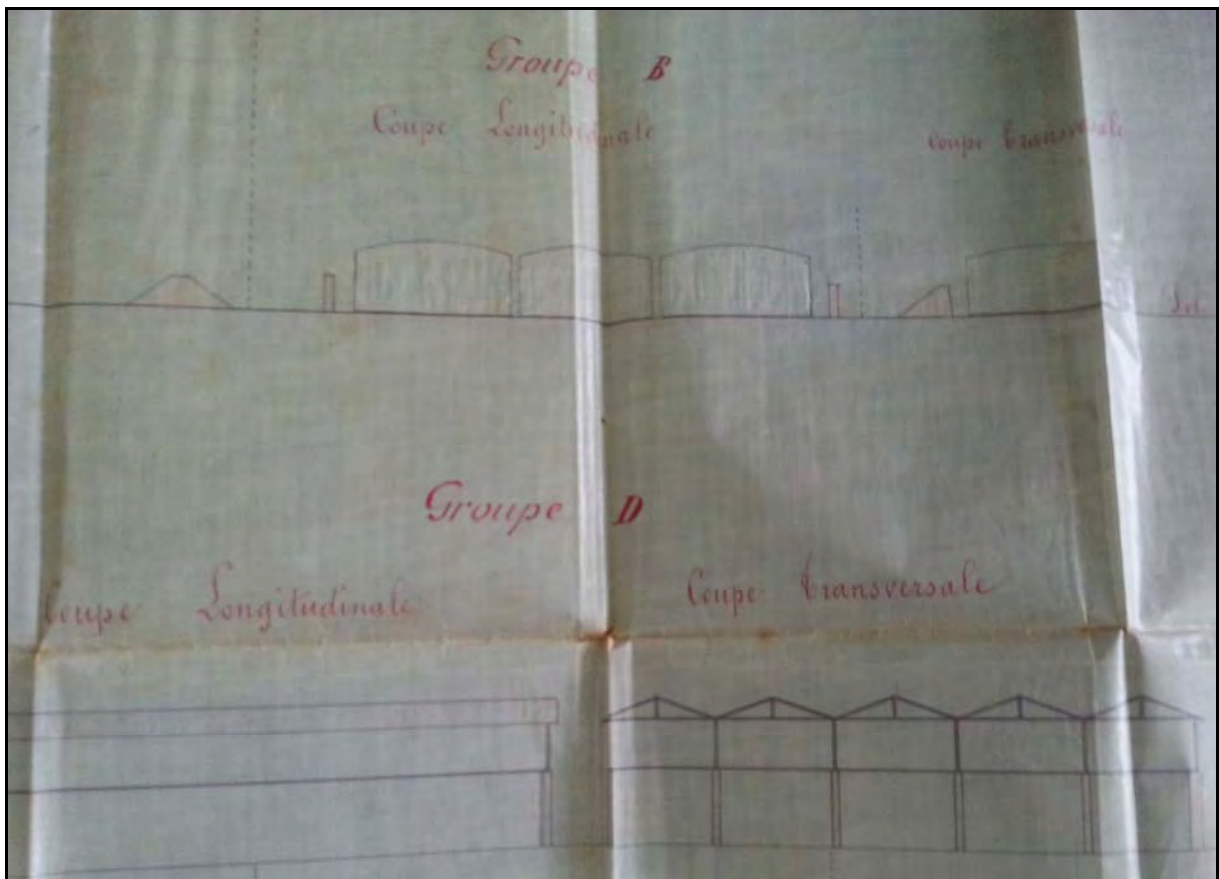 Groupe B
Coupe Longitudinale
Coupe transversale
Sol
Groupe D
Coupe Longitudinale
Coupe transversale